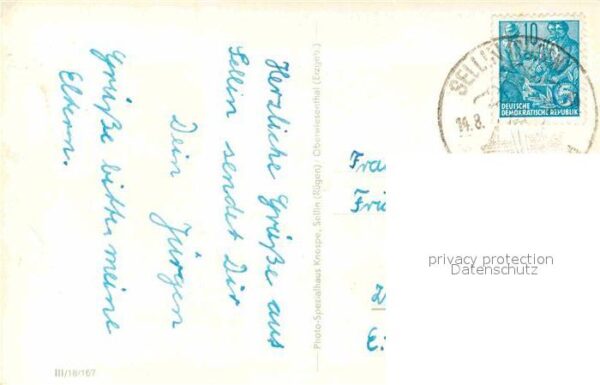 Herzliche Grüße aus
Sellin sendet Dir
Dein Jürgen
Grüße bitte meine
Eltern.
Photo-Spezialhaus Knospe, Sellin (Rügen) / Oberwiesenthal (Erzgb.)
III/18/167
10
DEUTSCHE
DEMOKRATISCHE REPUBLIK
14.8.
Fra
privacy protection
Datenschutz